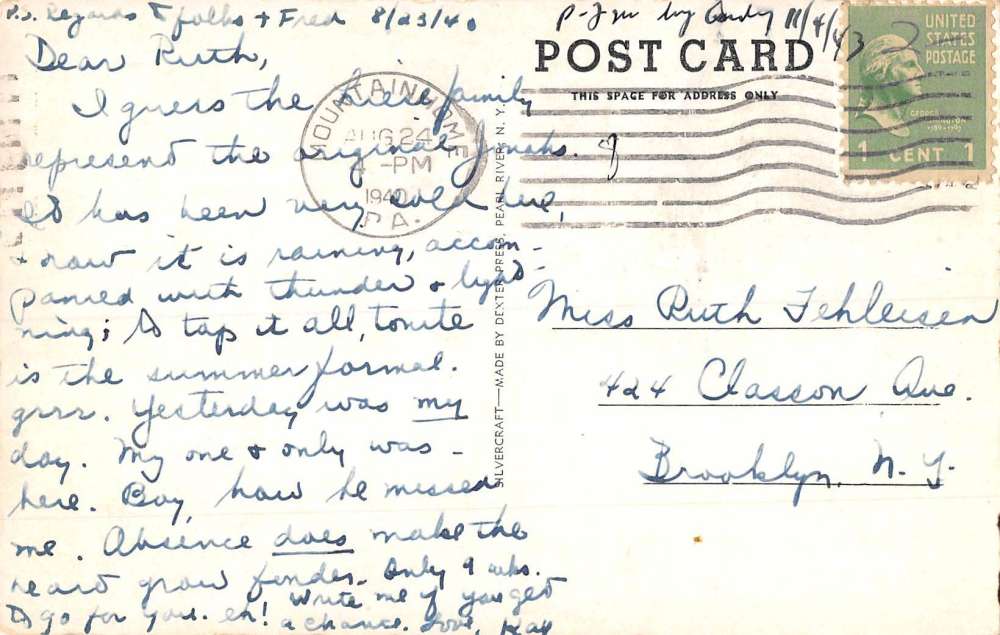 P.S. Regards to folks + Fred 8/23/40
Dear Ruth,
I guess the family
represent the original Jonahs.
It has been very cold here,
+ now it is raining, accom-
panied with thunder + light-
ning; to top it all, tonite
is the summer formal.
grrr. Yesterday was my
day. My one + only was
here. Boy, how he missed
me. Absence does make the
heart grow fonder. Only 9 wks.
to go for you. eh! Write me if you get
a chance. Love, Kay
11/4/43
POST CARD
THIS SPACE FOR ADDRESS ONLY
UNITED
STATES
POSTAGE
GEORGE
WASHINGTON
1789-1797
1 CENT 1
MOUNTAINHOME
AUG 24
4-PM
1940
PA.
SILVERCRAFT—MADE BY DEXTER PRESS, PEARL RIVER, N. Y.
Miss Ruth Fehleisen
424 Classon Ave.
Brooklyn, N. Y.